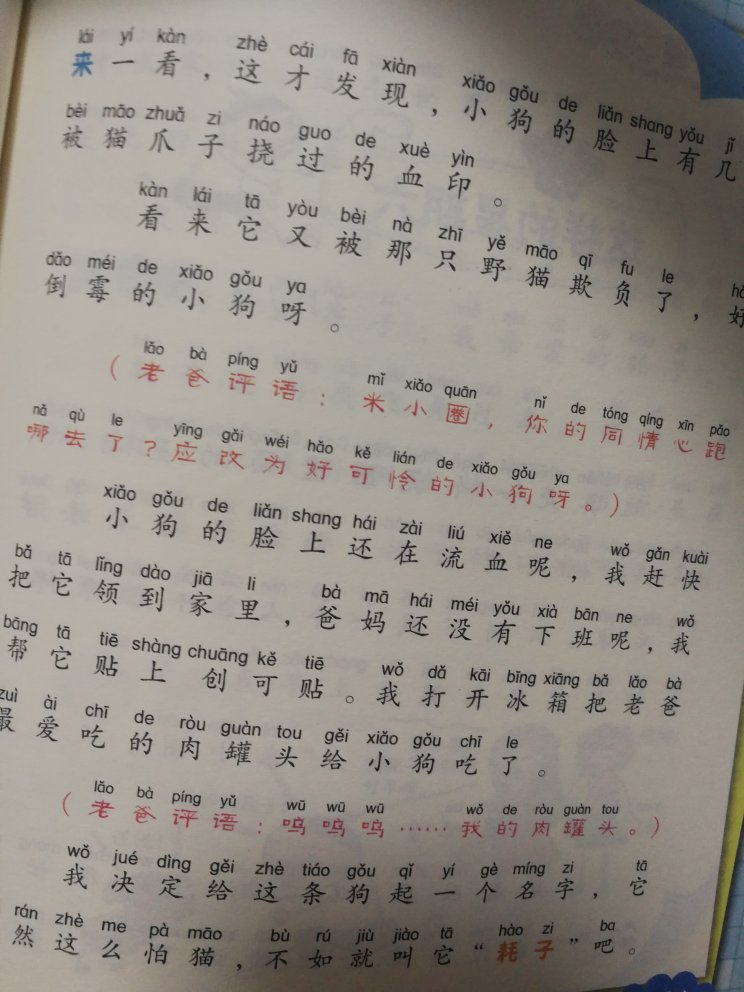 lái yí kàn zhè cái fā xiàn xiǎo gǒu de liǎn shang yǒu jǐ
来一看，这才发现，小狗的脸上有几
bèi māo zhuǎ zi náo guo de xuè yìn
被猫爪子挠过的血印。
kàn lái tā yòu bèi nà zhī yě māo qī fu le
看来它又被那只野猫欺负了，好
dǎo méi de xiǎo gǒu ya
倒霉的小狗呀。
lǎo bà píng yǔ mǐ xiǎo quān nǐ de tóng qíng xīn pǎo
（老爸评语：米小圈，你的同情心跑
nǎ qù le yīng gǎi wéi hǎo kě lián de xiǎo gǒu ya
哪去了？应改为好可怜的小狗呀。）
xiǎo gǒu de liǎn shang hái zài liú xiě ne wǒ gǎn kuài
小狗的脸上还在流血呢，我赶快
bǎ tā lǐng dào jiā li bà mā hái méi yǒu xià bān ne wǒ
把它领到家里，爸妈还没有下班呢，我
bāng tā tiē shàng chuāng kě tiē wǒ dǎ kāi bīng xiāng bǎ lǎo bà
帮它贴上创可贴。我打开冰箱把老爸
zuì ài chī de ròu guàn tou gěi xiǎo gǒu chī le
最爱吃的肉罐头给小狗吃了。
lǎo bà píng yǔ wū wū wū wǒ de ròu guàn tou
（老爸评语：呜呜呜……我的肉罐头。）
wǒ jué dìng gěi zhè tiáo gǒu qǐ yí gè míng zi tā
我决定给这条狗起一个名字，它
rán zhè me pà māo bù rú jiù jiào tā hào zi ba
然这么怕猫，不如就叫它“耗子”吧。